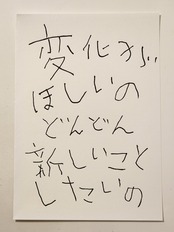 変化が
ほしいの
どんどん
新しいこと
したいの